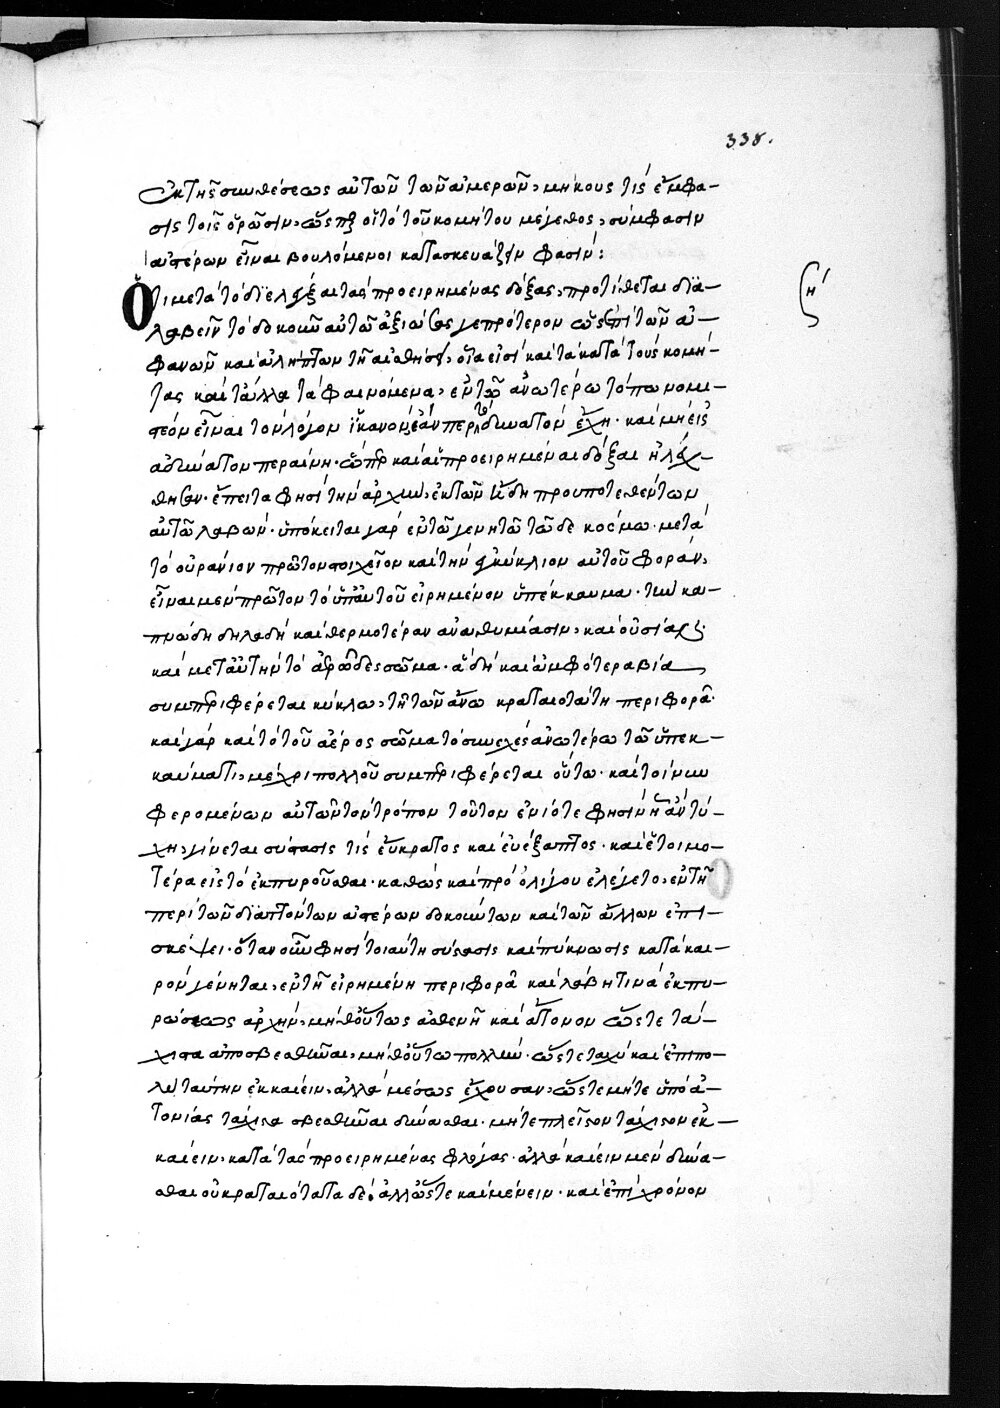 338.
ἐκ τῆς συνθέσεως αὐτῶν τῶν ἀμερῶν, μήκους τίς ἔμφα-
σις τοῖς ὁρῶσιν, ὥσπερ οἳ τὸ τοῦ κομήτου μέγεθος, σύμφασιν
ἀστέρων εἶναι βουλόμενοι κατασκευάζειν φασίν:
η΄
Ὅτι μετὰ τὸ διελέγξαι τὰς προειρημένας δόξας, προτίθεται δια-
λαβεῖν τὸ δοκοῦν αὐτῶ ἀξιώσας γε πρότερον ὡς ἐπὶ τῶν ἀ-
φανῶν καὶ ἀλήπτων τῆ αἰσθήσει, οἷα εἰσὶ καὶ τὰ κατὰ τοὺς κομή-
τας καὶ τἄλλα τὰ φαινόμενα, ἐν τῶ ἀνωτέρω τόπω νομι-
στέον εἶναι τὸν λόγον ἱκανὸν, ἐάνπερ τὸ δυνατὸν ἔχη· καὶ μὴ εἰς
ἀδύνατον περαίνη· ὥσπερ καὶ αἱ προειρημέναι δόξαι ἠλέγχ-
θησαν· ἔπειτα φησὶ τὴν ἀρχὴν, ἐκ τῶν ἤδη προυποτεθέντων
αὐτῶ λαβών· ὑπόκειται γὰρ ἐν τῶ γενητῶ τῶδε κόσμω· μετὰ
τὸ οὐράνιον πρῶτον στοιχεῖον καὶ τὴν ἐγκύκλιον αὐτοῦ φορὰν,
εἶναι μὲν πρῶτον τὸ ὑπ' αὐτοῦ εἰρημένον ὑπέκκαυμα· τὴν κα-
πνώδη δηλαδὴ καὶ θερμοτέραν ἀναθυμίασιν, καὶ οὐσίαν·
καὶ μετ' αὐτὴν τὸ ἀερῶδες σῶμα· ἃ δὴ καὶ ἀμφότερα βία
συμπεριφέρεται κύκλω, τῆ τῶν ἄνω κραταιοτάτη περιφορᾶ·
καὶ γὰρ καὶ τὸ τοῦ ἀέρος σῶμα τὸ συνεχὲς ἀνωτέρω τῶ ὑπεκ-
καύματι, μέχρι πολλοῦ συμπεριφέρεται οὕτω· καὶ τοίνυν
φερομένων αὐτῶν τὸν τρόπον τοῦτον ἐνίοτε φησὶν ἧ ἂν τύ-
χη, γίνεται σύστασίς τις εὔκρατος καὶ εὐέξαπτος· καὶ ἑτοιμο-
τέρα εἰς τὸ ἐκπυροῦσθαι· καθὼς καὶ πρὸ ὀλίγου ἐλέγετο, ἐν τῆ
περὶ τῶν διαπτόντων ἀστέρων δοκούντων καὶ τῶν ἄλλων ἐπι-
σκέψει· ὅταν οὖν φησὶ τοιαύτη σύστασις καὶ πύκνωσις κατὰ και-
ρὸν γένηται, ἐν τῆ εἰρημένη περιφορᾶ καὶ λάβη τινὰ ἐκπυ-
ρώσεως ἀρχὴν, μήθ' οὕτως ἀσθενῆ καὶ ἄτονον ὥστε τά-
χιστα ἀποσβεσθῆναι, μήθ' οὕτω πολλὴν· ὥστε ταχὺ καὶ ἐπιπο-
λὺ ταύτην ἐκκαίειν, ἀλλὰ μέσως ἔχουσαν, ὥστε μήτε ὑπὸ ἀ-
τονίας τάχιστα σβεσθῆναι δύνασθαι· μήτε πλεῖστον τάχιστον ἐκ-
καίειν, κατὰ τὰς προειρημένας φλόγας· ἀλλὰ καίειν μὲν δύνα-
σθαι οὐ κραταιότατα δὲ, ἀλλ' ὥστε καὶ μένειν· καὶ ἐπὶ χρόνον